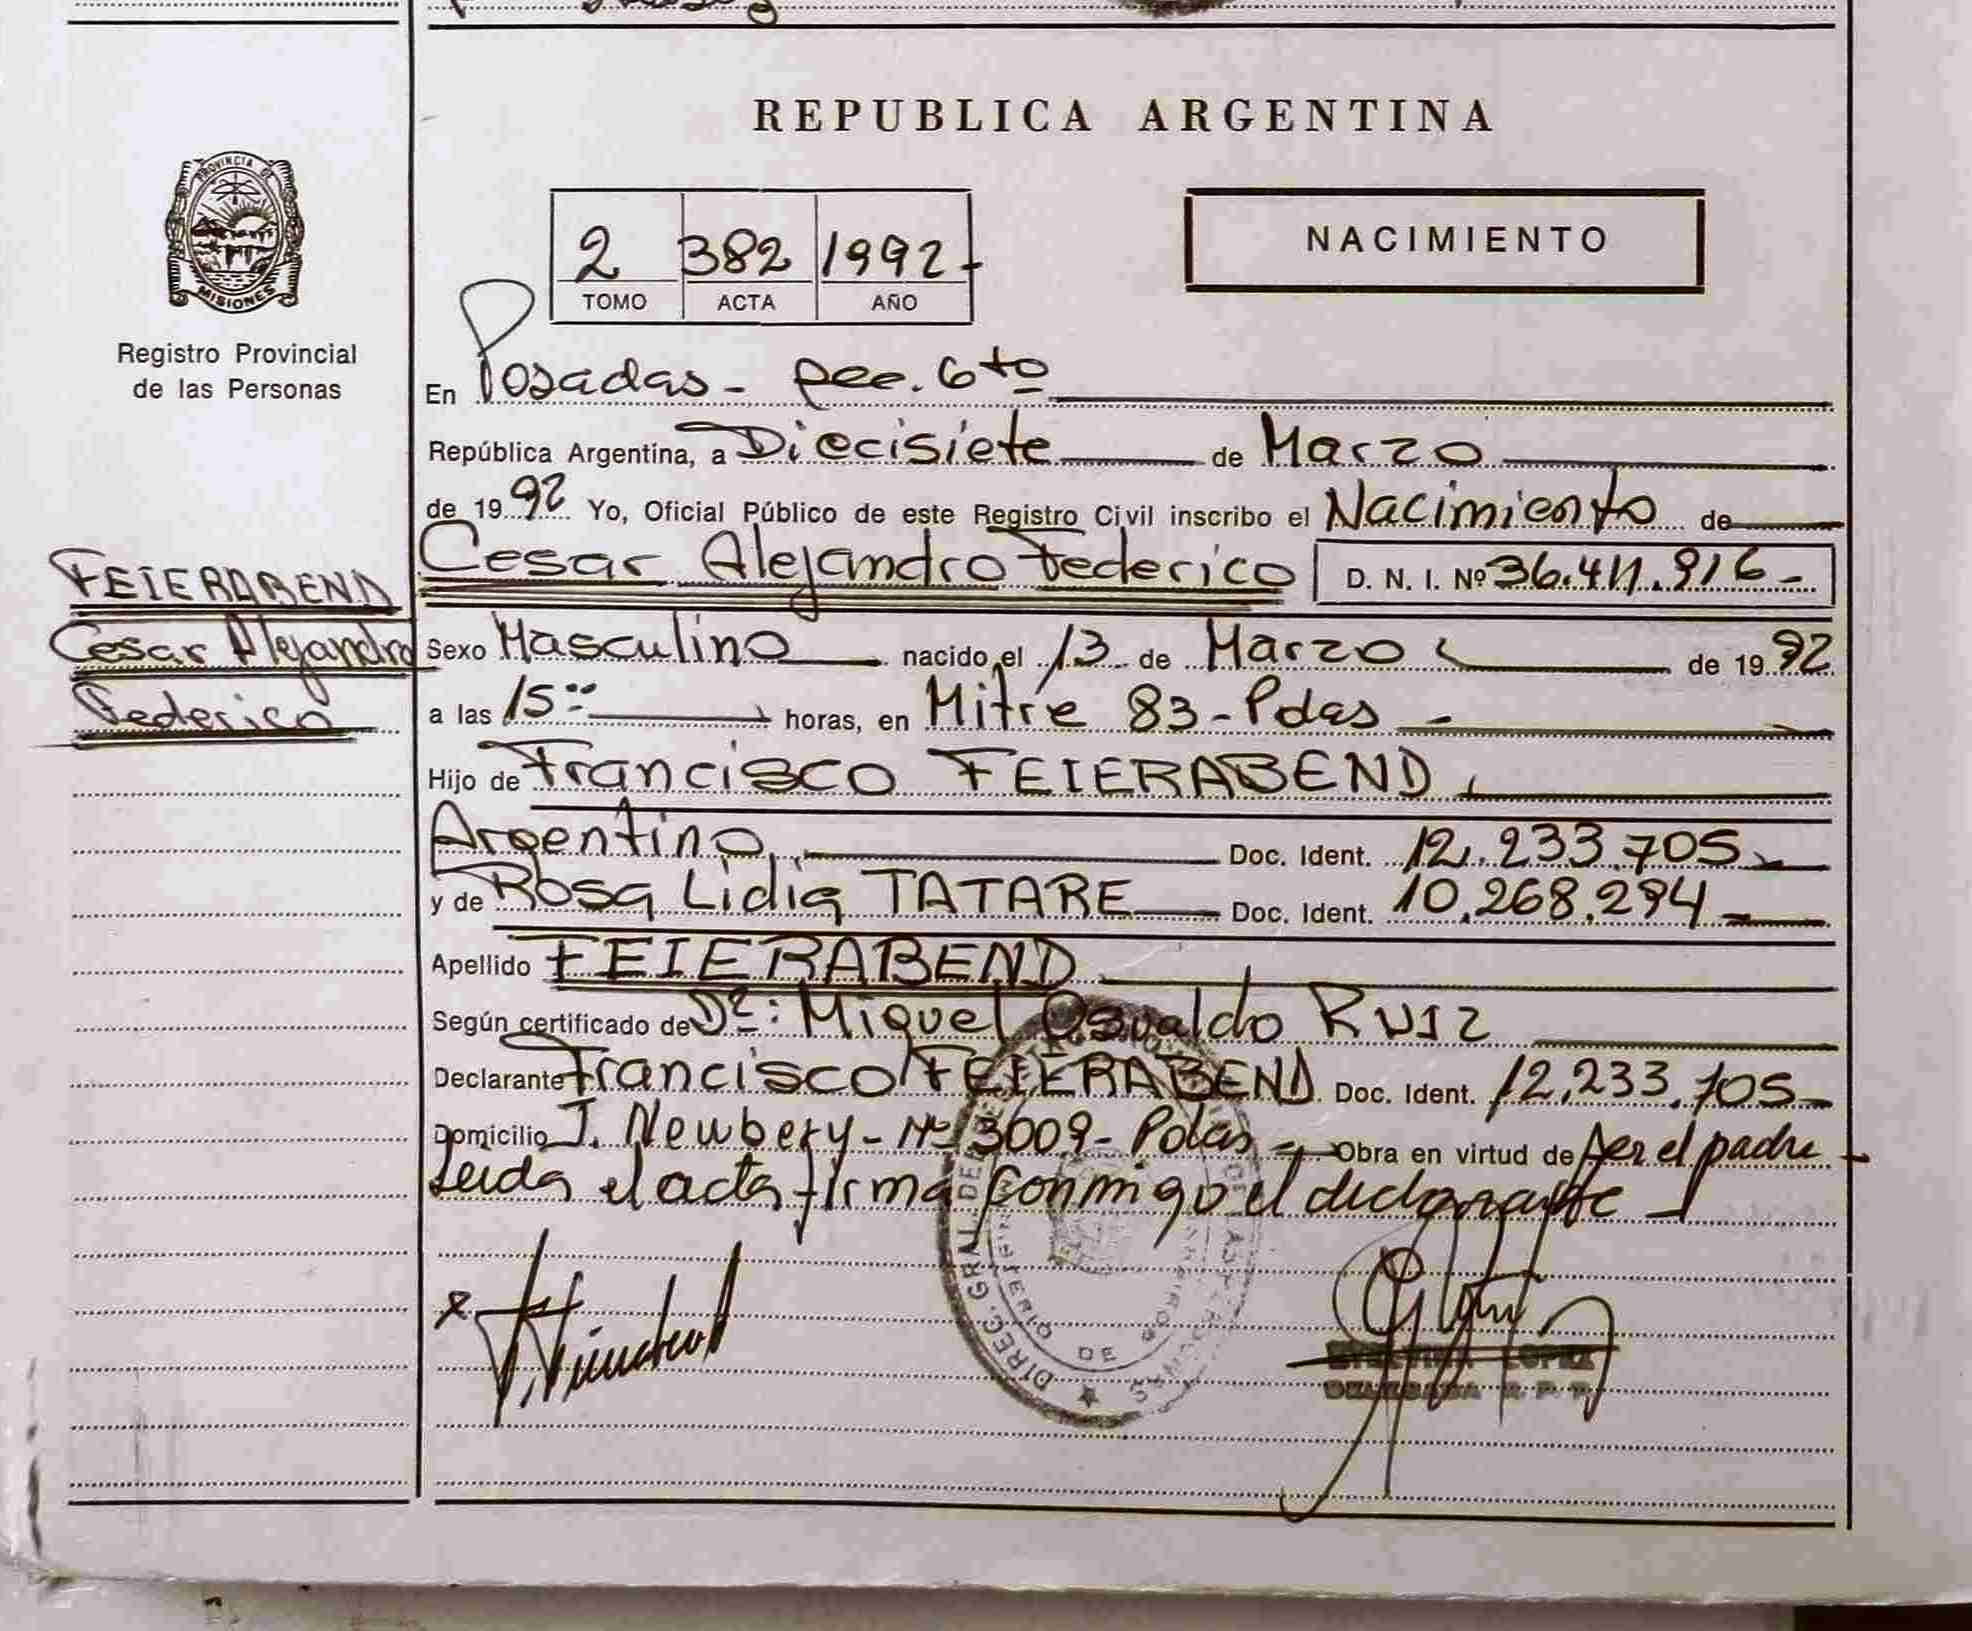 REPUBLICA ARGENTINA
PROVINCIA DE
MISIONES
Registro Provincial
de las Personas
2 382 1992
TOMO ACTA AÑO
NACIMIENTO
En Posadas - 6to
República Argentina, a Diecisiete de Marzo
de 1992 Yo, Oficial Público de este Registro Civil inscribo el Nacimiento de
FEIERABEND
Cesar Alejandro
Federico
Cesar Alejandro Federico D. N. I. Nº 36.411.916-
Sexo Masculino nacido el 13 de Marzo de 1992
a las 15 horas, en Mitre 83-Pdas -
Hijo de Francisco FEIERABEND
Argentino Doc. Ident. 12.233.705
y de Rosa Lidia TATARE Doc. Ident. 10.268.294
Apellido FEIERABEND
Según certificado de Dr: Miguel Osvaldo RUIZ
Declarante Francisco FEIERABEND Doc. Ident. 12.233.705
Domicilio J. Newbery - Nº 3009 - Pdas - Obra en virtud de ser el padre
Leida el acta firma conmigo el declarante
DIREC. GRAL. DE
MINISTERIO DE
LOPEZ
DELEGADA R. P. P.